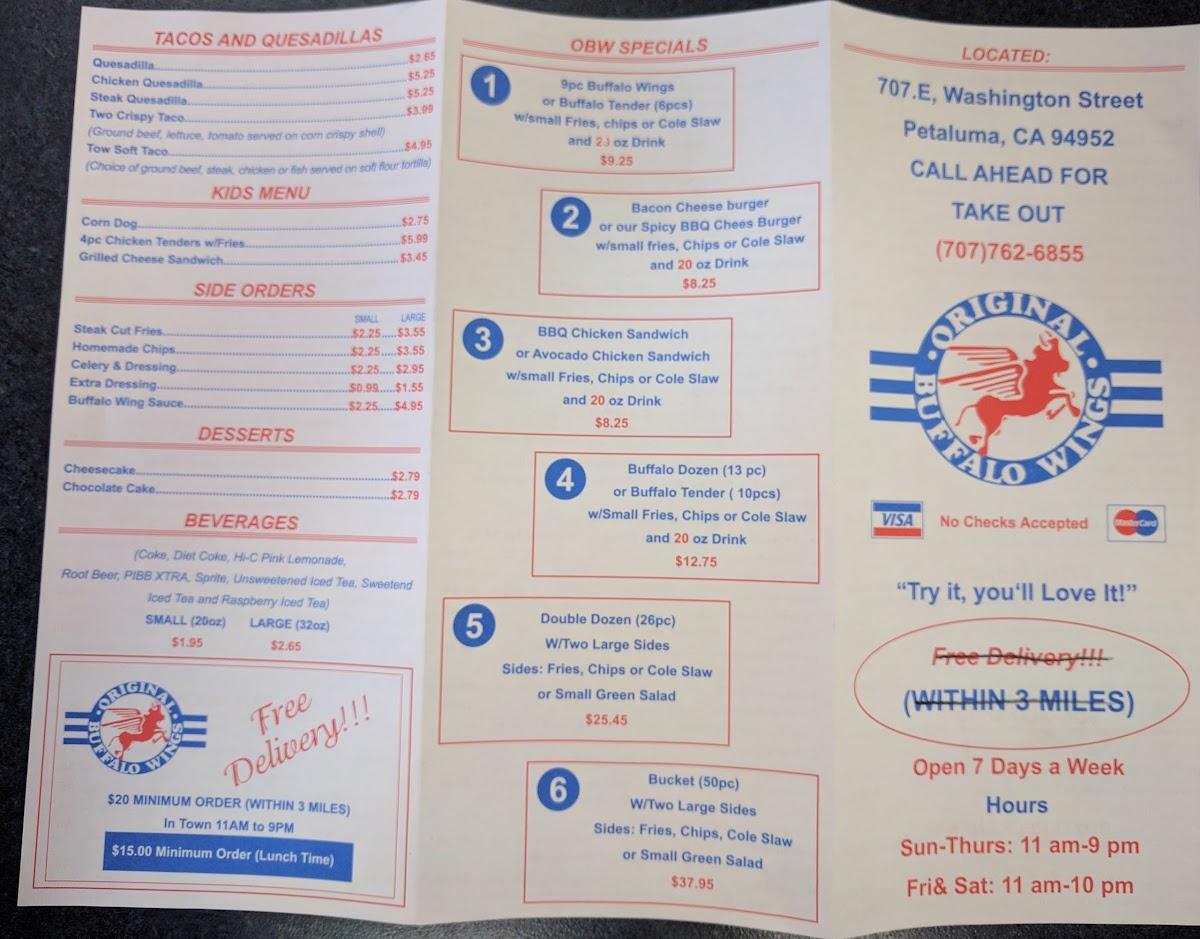 TACOS AND QUESADILLAS
Quesadilla $2.65
Chicken Quesadilla $5.25
Steak Quesadilla $5.25
Two Crispy Taco $3.99
(Ground beef, lettuce, tomato served on corn crispy shell)
Tow Soft Taco $4.95
(Choice of ground beef, steak, chicken or fish served on soft flour tortilla)
KIDS MENU
Corn Dog $2.75
4pc Chicken Tenders w/Fries $5.99
Grilled Cheese Sandwich $3.45
SIDE ORDERS
SMALL LARGE
Steak Cut Fries $2.25 $3.55
Homemade Chips $2.25 $3.55
Celery & Dressing $2.25 $2.95
Extra Dressing $0.99 $1.55
Buffalo Wing Sauce $2.25 $4.95
DESSERTS
Cheesecake $2.79
Chocolate Cake $2.79
BEVERAGES
(Coke, Diet Coke, Hi-C Pink Lemonade,
Root Beer, PIBB XTRA, Sprite, Unsweetened Iced Tea, Sweetend
Iced Tea and Raspberry Iced Tea)
SMALL (20oz) LARGE (32oz)
$1.95 $2.65
ORIGINAL BUFFALO WINGS
Free
Delivery!!!
$20 MINIMUM ORDER (WITHIN 3 MILES)
In Town 11AM to 9PM
$15.00 Minimum Order (Lunch Time)
OBW SPECIALS
1
9pc Buffalo Wings
or Buffalo Tender (6pcs)
w/small Fries, chips or Cole Slaw
and 20 oz Drink
$9.25
2
Bacon Cheese burger
or our Spicy BBQ Chees Burger
w/small fries, Chips or Cole Slaw
and 20 oz Drink
$8.25
3
BBQ Chicken Sandwich
or Avocado Chicken Sandwich
w/small Fries, Chips or Cole Slaw
and 20 oz Drink
$8.25
4
Buffalo Dozen (13 pc)
or Buffalo Tender ( 10pcs)
w/Small Fries, Chips or Cole Slaw
and 20 oz Drink
$12.75
5
Double Dozen (26pc)
W/Two Large Sides
Sides: Fries, Chips or Cole Slaw
or Small Green Salad
$25.45
6
Bucket (50pc)
W/Two Large Sides
Sides: Fries, Chips, Cole Slaw
or Small Green Salad
$37.95
LOCATED:
707.E, Washington Street
Petaluma, CA 94952
CALL AHEAD FOR
TAKE OUT
(707)762-6855
ORIGINAL BUFFALO WINGS
VISA No Checks Accepted MasterCard
“Try it, you‘ll Love It!”
Free Delivery!!!
(WITHIN 3 MILES)
Open 7 Days a Week
Hours
Sun-Thurs: 11 am-9 pm
Fri& Sat: 11 am-10 pm